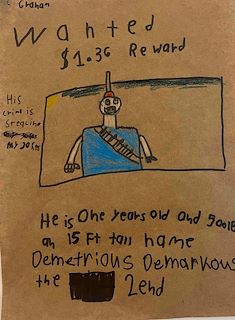 Graham
Wanted
$1.36 Reward
His
crim is
steqling
He is One years old and
an 15 Ft tall name
Demetrious Demarkous
the 2end